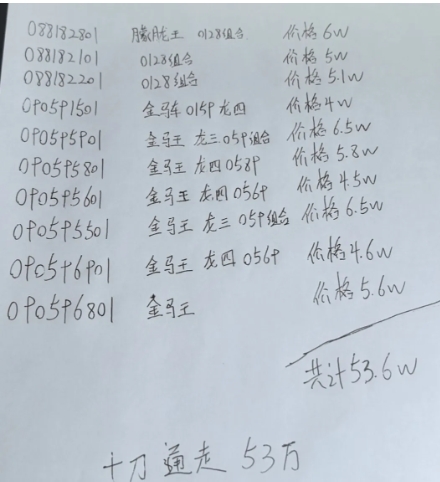 088182801 朦胧王 0128组合 价格6W
088182101 0128组合 价格5W
088182201 0128组合 价格5.1W
090591501 金马车 0159龙四 价格4W
090595901 金马王 龙三059组合 价格6.5W
090595801 金马王 龙四0589 价格5.8W
090595601 金马王 龙四0569 价格4.5W
090595501 金马王 龙三059组合 价格6.5W
090596901 金马王 龙四0569 价格4.6W
090596801 金马王 价格5.6W
共计53.6W
十刀通走 53万